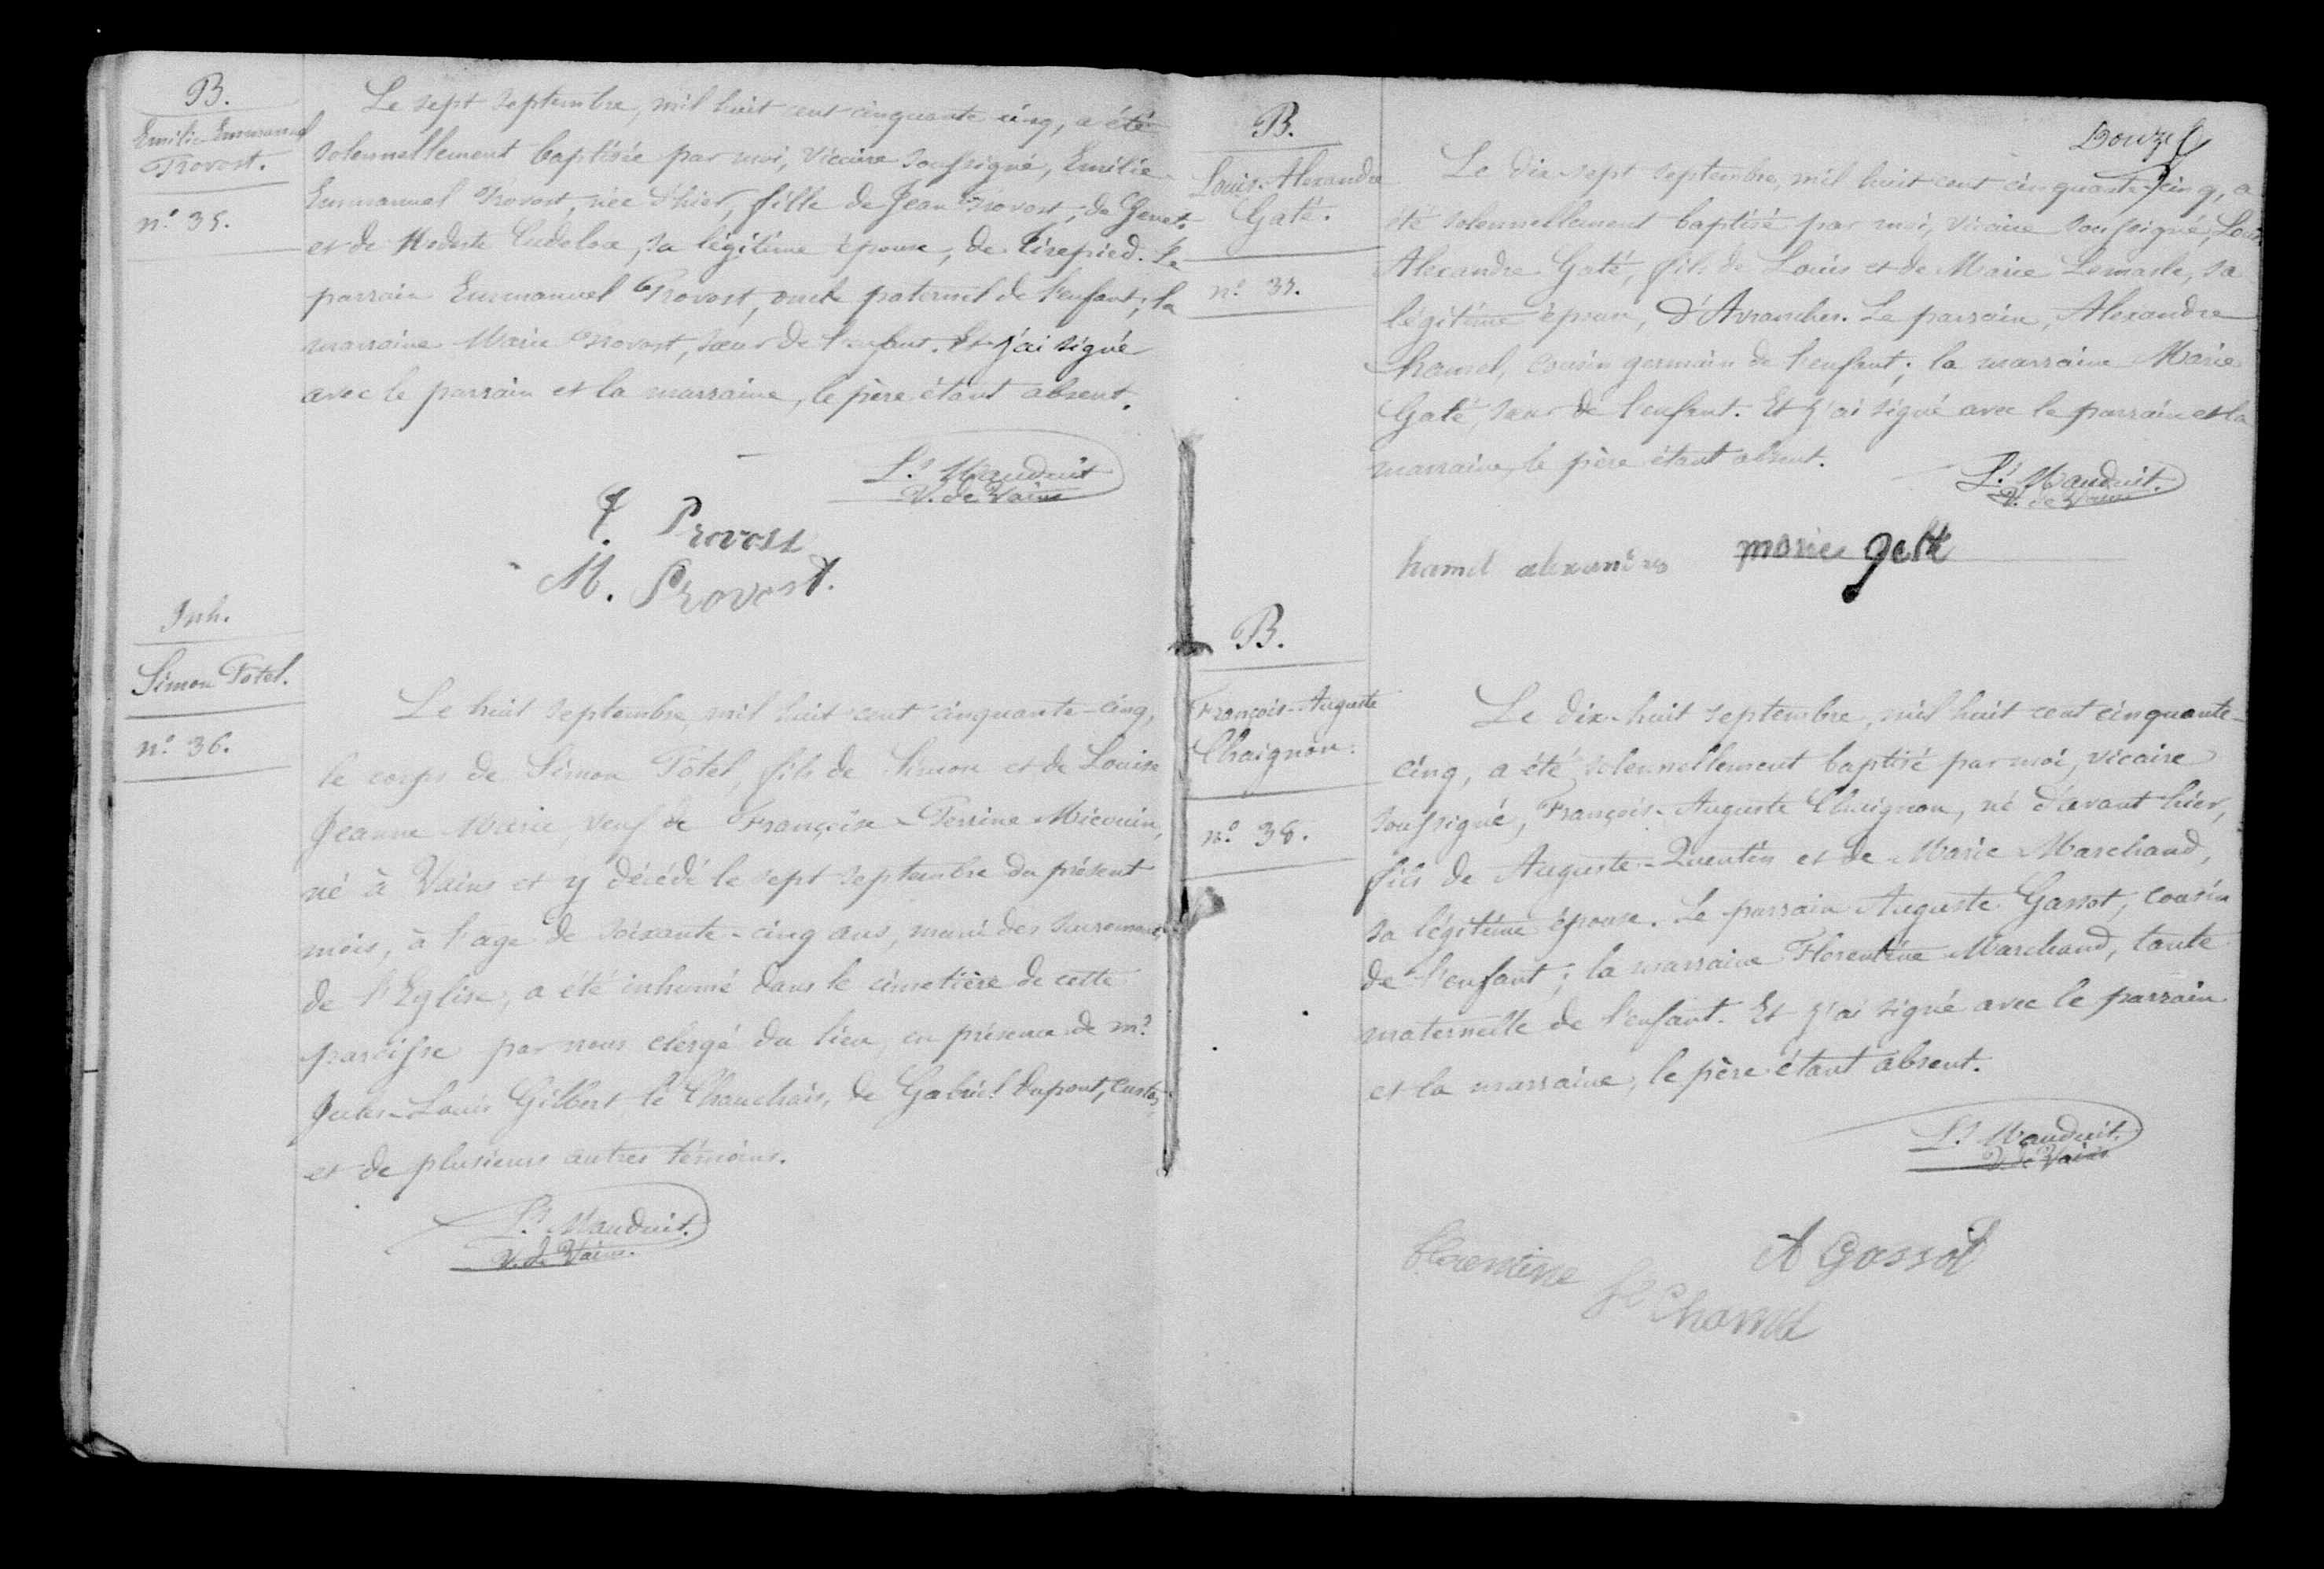 B.
Emilie Emmanuel
Provost.
n.º 35.
Le sept septembre, mil huit cent cinquante cinq, a été
solennellement baptisée par moi, vicaire soussigné, Emilie
Emmanuel Provost, née d'hier, fille de Jean Provost, de Genet,
et de Modeste, sa légitime épouse, de Tirepied. Le
parrain Emmanuel Provost, oncle paternel de l'enfant; la
marraine Marie Provost, sœur de l'enfant. Et j'ai signé
avec le parrain et la marraine, le père étant absent.
L.s Mauduit
V. de Vains
Provost
M. Provost.
Inh.
Simon Potel.
n.º 36.
Le huit septembre, mil huit cent cinquante-cinq,
le corps de Simon Potel, fils de Simon et de Louise
Jeanne Marie, veuf de Françoise-Perrine,
né à Vains et y décédé le sept septembre du présent
mois, à l'age de soixante-cinq ans, muni des sacrements
de l'Eglise, a été inhumé dans le cimetière de cette
paroisse par nous clergé du lieu, en présence de m.r
Jules-Louis Gilbert le Chanchais, de Gabriel Dupont, custos,
et de plusieurs autres témoins.
L.s Mauduit.
V. de Vains.
Douze
B.
Louis-Alexandre
Gaté.
n.º 37.
Le dix-sept septembre, mil huit cent cinquante-cinq, a
été solennellement baptisé par moi, vicaire soussigné, Louis
Alexandre Gaté, fils de Louis et de Marie Lemasle, sa
légitime épouse, d'Avranches. Le parrain, Alexandre
hamel, cousin germain de l'enfant; la marraine Marie
Gaté, sœur de l'enfant. Et j'ai signé avec le parrain et la
marraine, le père étant absent.
L.s Mauduit.
V. de Vains
hamel alexandre marie
B.
François-Auguste
Chaignon.
n.º 38.
Le dix-huit septembre, mil huit cent cinquante-
cinq, a été solennellement baptisé par moi, vicaire
soussigné, François-Auguste Chaignon, né d'avant hier,
fils de Auguste-Quentin et de Marie Marchand,
sa légitime épouse. Le parrain Auguste Gassot, cousin
de l'enfant; la marraine Florentine Marchand, tante
maternelle de l'enfant. Et j'ai signé avec le parrain
et la marraine, le père étant absent.
L.s Mauduit.
V. de Vains
A Gossot
florentine